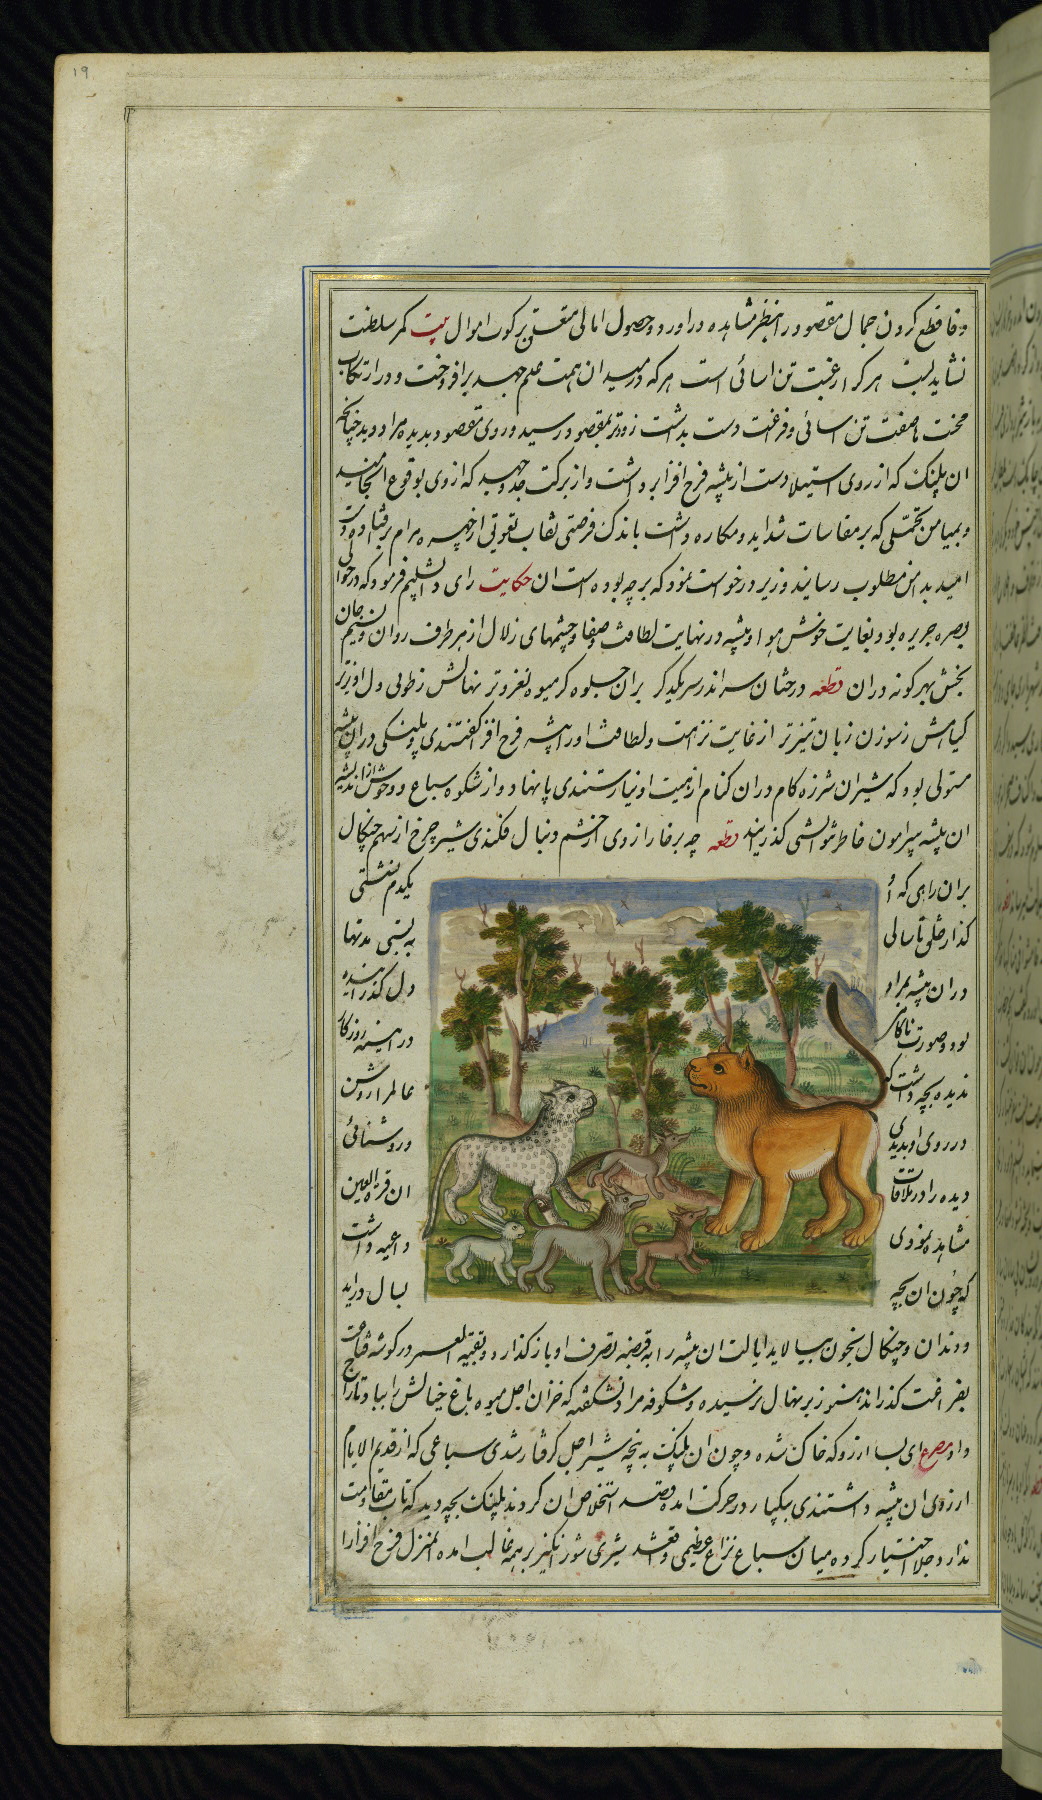 ۱۹
و فا قطع کرون جمال مقصود را بنظر مشاهده دراورد و حصول امانی متعلق برکوب اموال بیت کمر سلطنت
نشاید بست هر کرا رغبت تن اسائی است هر که در میدان همت علم جهد برافروخت و در ارتکاب
محنت تن اسائی و فراغت دست بداشت زودتر بمقصود رسید و روی مقصود بدیده مراد دید چنانکه
ان پلنک که از روی استیلا دست از بیشه فرح افزا برداشت و از برکت جد و جهد که از وی بوقوع انجامید
و بمیامن تحملی که بر مقاسات شداید و مکاره داشت باندک فرصتی نقاب تعویق از چهره مرام برفتاد و دست
امید بدامن مطلوب رسانید وزیر درخواست نمود که برچه بوده است ان حکایت رای دابشلیم فرمود که در حوالی
بصره جزیره بود بغایت خوش هوا و بیشه در نهایت لطافت و صفا و چشمهای زلال از هر طرف روان و نسیم جان
بخش بهر کونه دران قطعه درختان سر اندر سر یکدکر بران جلوه کر میوه نغز و تر نهالش ز طوبی دل اویزتر
کیاهش ز سوزن زبان تیزتر از غایت نزهت و لطافت اورا بیشه فرح افزا کفتندی و پلنکی دران بیشه
مستولی بود که شیران شرزه کام دران کنام از هیبت او نیارستندی پا نهاد و از شکوه سباع و وحوش از اندیشه
ان بیشه پیرامون خاطر نتوانستی کذرانید قطعه چه برخارا زوی از خشم دنبال فکندی شیر چرخ از سهم چنکال
بران راهی که او یکدم نشستی
کذار خلق تا سالی به بستی مدتها
دران بیشه بمراد دل کذرانیده
بود و صورت ناکامی در اینه روزکار
ندیده بچه داشت که عالم را روشن
در روی او بدیدی و روشنائی
دیده را در ملاقات ان قرة العین
مشاهده نمودی و داعیه داشت
که چون ان بچه بسال دراید
و دندان و چنکال بخون بیالاید ایالت ان بیشه را بقبضه تصرف او باز کذارد و بقیة العمر در کوشه قناعت
بفراغت کذراند هنوز بر نهال نرسیده و شکوفه مراد نشکفته که خزان اجل میوه باغ خیالش را بباد تاراج
داد مصرع ای بسا ارزو که خاک شده و چون ان پلنک به پنجه شیر اجل کرفتار شدی سباعی که از قدیم الایام
ارزوی ان بیشه داشتندی بیکبار در حرکت امد و قصد استخلاص ان کردند پلنک بچه دید که تاب مقاومت
ندارد جلا اختیار کرده میان سباع نزاع عظیمی واقع شد شیری شور انکیز بر همه غالب امده منزل فرح افزا را